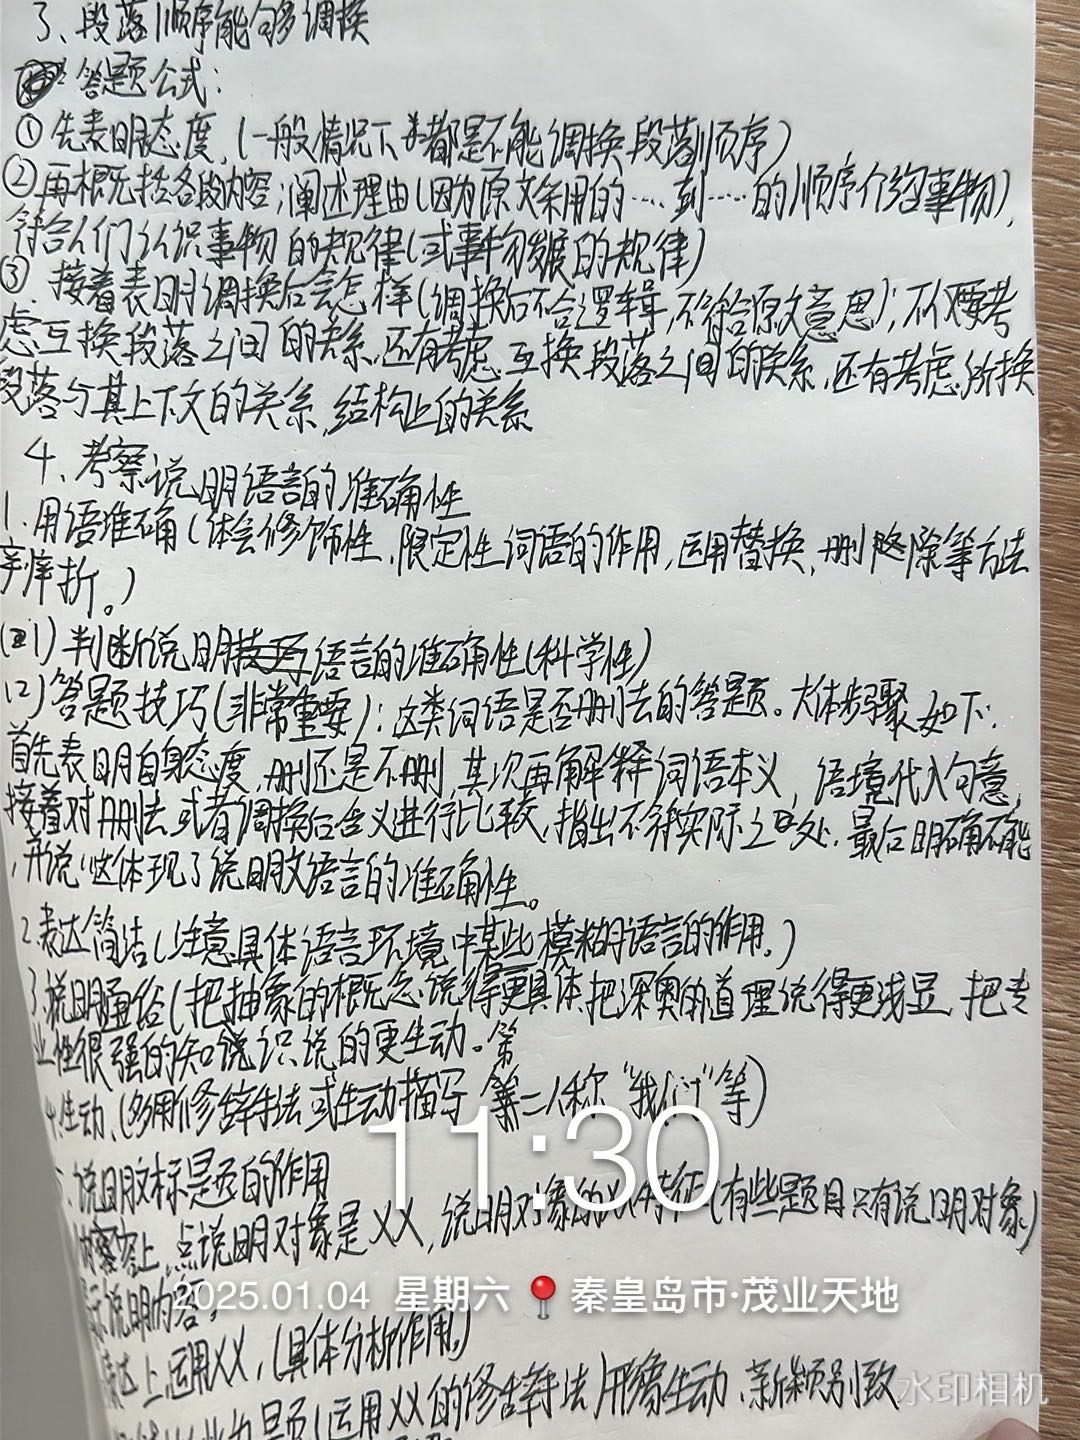 3、段落顺序能够调换
答题公式：
①先表明态度，(一般情况下 都是不能调换段落顺序)
②再概括各段内容；阐述理由(因为原文采用的……到……的顺序介绍事物)，
符合人们认识事物的规律(或事物发展的规律)
③ 接着表明调换后会怎样(调换后不合逻辑，不符合原文意思)；不仅要考
虑互换段落之间的关系，还有考虑互换段落之间的关系，还有考虑所换
段落与其上下文的关系，结构上的关系
4、考察说明语言的准确性
1.用语准确(体会修饰性、限定性词语的作用，运用替换，删除等方法
辨析。)
(1)判断说明语言的准确性(科学性)
(2)答题技巧(非常重要)：这类词语是否删去的答题。大体步骤如下：
首先表明自身态度，删还是不删，其次再解释词语本义，语境代入句意，
接着对删去或者调换后含义进行比较，指出不符实际之处，最后明确不能
，并说：这体现了说明文语言的准确性。
2.表达简洁(注意具体语言环境中某些模糊语言的作用。)
3.说明通俗(把抽象的概念说得更具体，把深奥的道理说得更浅显，把专
业性很强的知识说的更生动。第
4.生动、(多用修辞手法或生动描写 第二人称“我们”等)
、说明文标题的作用
内容上，点说明对象是XX，说明对象的XX特征(有些题目只有说明对象)
说明内容。
表达上，运用XX，(具体分析作用。)
题(运用XX的修辞手法 形象生动、新颖别致
11:30
2025.01.04 星期六 秦皇岛市·茂业天地
水印相机